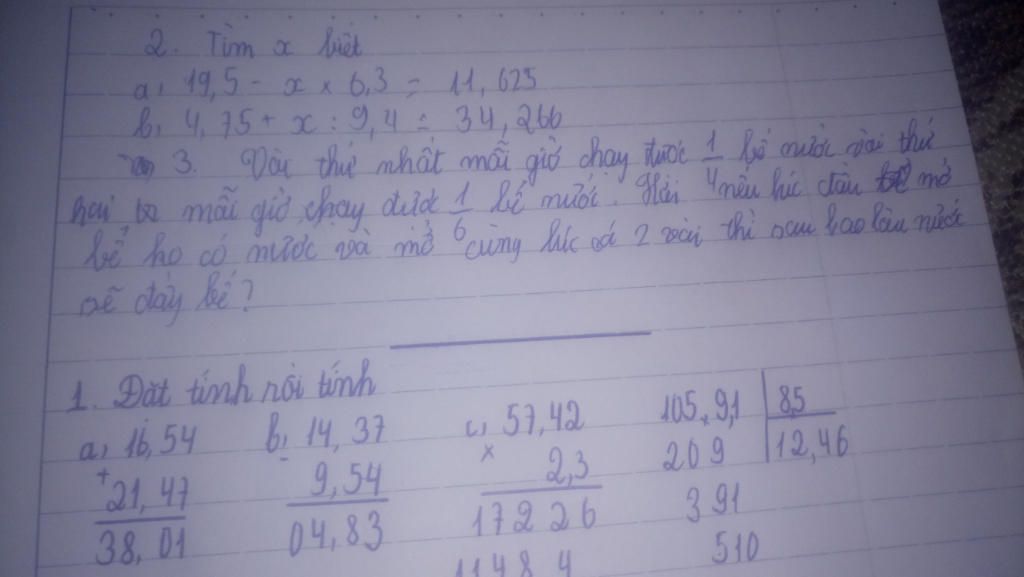 2. Tìm x biết
a, 19,5 - x × 6,3 = 11,625
b, 4,75 + x : 9,4 = 34,266
3. Vòi thứ nhất mỗi giờ chảy được 1/4 bể nước vòi thứ
hai mỗi giờ chảy được 1/6 bể nước. Hỏi nếu lúc đầu mở
bể ko có nước và mở cùng lúc cả 2 vòi thì sau bao lâu nước
sẽ đầy bể?
1. Đặt tính rồi tính
a, 16,54 b, 14,37 c, 57,42 105,9,1 85
+ 21,47 - 9,54 × 2,3 209 12,46
38,01 04,83 17226 391
1148 4 510